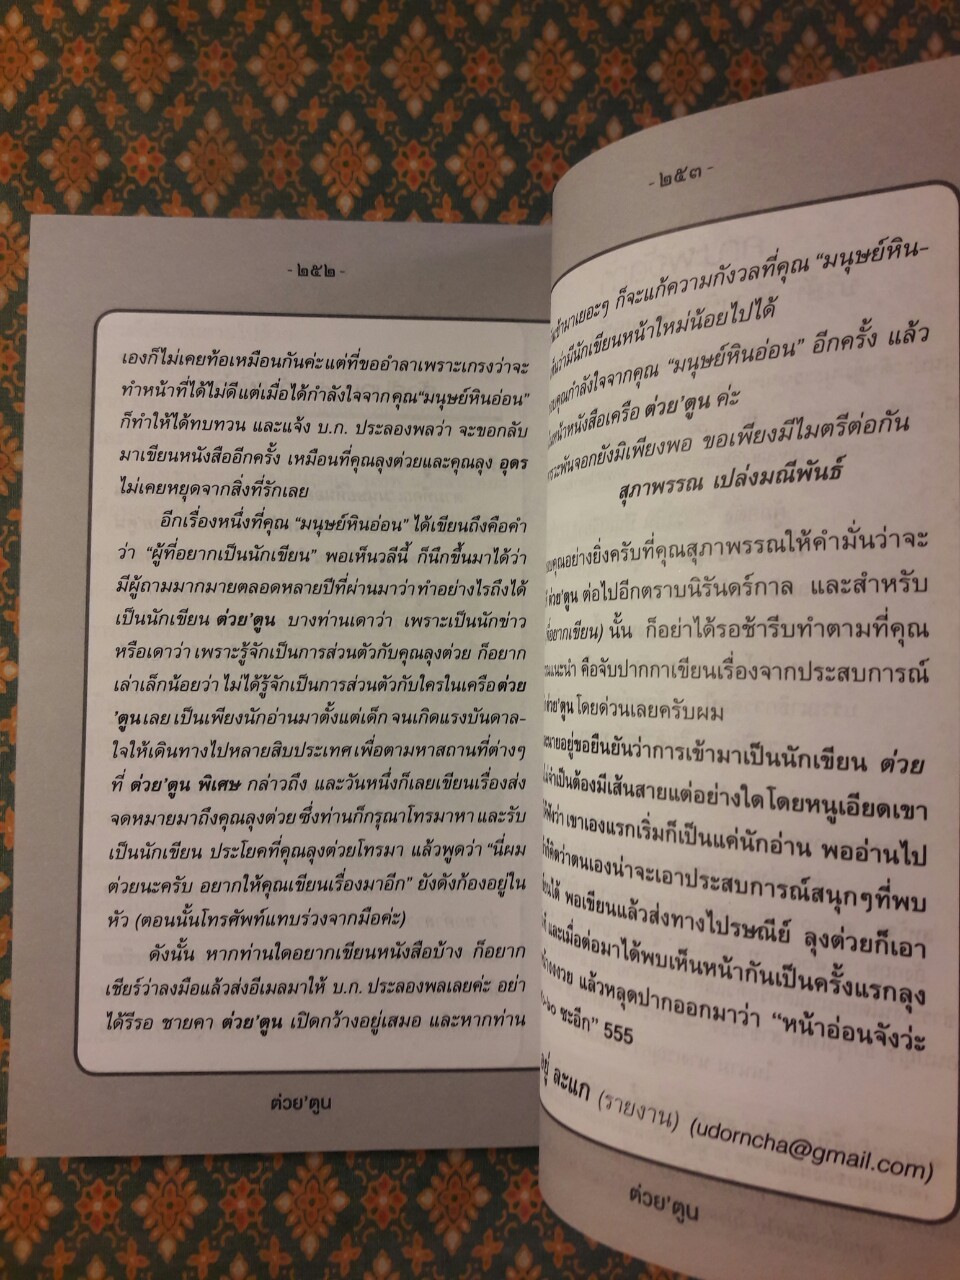 - ๒๕๒ -
เองก็ไม่เคยท้อเหมือนกันค่ะ แต่ที่ขออำลาเพราะเกรงว่าจะ
ทำหน้าที่ได้ไม่ดี แต่เมื่อได้กำลังใจจากคุณ “มนุษย์หินอ่อน”
ก็ทำให้ได้ทบทวน และแจ้ง บ.ก. ประลองพลว่า จะขอกลับ
มาเขียนหนังสืออีกครั้ง เหมือนที่คุณลุงต่วยและคุณลุง อุดร
ไม่เคยหยุดจากสิ่งที่รักเลย
อีกเรื่องหนึ่งที่คุณ “มนุษย์หินอ่อน” ได้เขียนถึงคือคำ
ว่า “ผู้ที่อยากเป็นนักเขียน” พอเห็นวลีนี้ ก็นึกขึ้นมาได้ว่า
มีผู้ถามมากมายตลอดหลายปีที่ผ่านมาว่าทำอย่างไรถึงได้
เป็นนักเขียน ต่วย’ตูน บางท่านเดาว่า เพราะเป็นนักข่าว
หรือเดาว่า เพราะรู้จักเป็นการส่วนตัวกับคุณลุงต่วย ก็อยาก
เล่าเล็กน้อยว่า ไม่ได้รู้จักเป็นการส่วนตัวกับใครในเครือ ต่วย
’ตูน เลย เป็นเพียงนักอ่านมาตั้งแต่เด็ก จนเกิดแรงบันดาล-
ใจให้เดินทางไปหลายสิบประเทศ เพื่อตามหาสถานที่ต่างๆ
ที่ ต่วย’ตูน พิเศษ กล่าวถึง และวันหนึ่งก็เลยเขียนเรื่องส่ง
จดหมายมาถึงคุณลุงต่วย ซึ่งท่านก็กรุณาโทรมาหา และรับ
เป็นนักเขียน ประโยคที่คุณลุงต่วยโทรมา แล้วพูดว่า “นี่ผม
ต่วยนะครับ อยากให้คุณเขียนเรื่องมาอีก” ยังดังก้องอยู่ใน
หัว (ตอนนั้นโทรศัพท์แทบร่วงจากมือค่ะ)
ดังนั้น หากท่านใดอยากเขียนหนังสือบ้าง ก็อยาก
เชียร์ว่าลงมือแล้วส่งอีเมลมาให้ บ.ก. ประลองพลเลยค่ะ อย่า
ได้รีรอ ชายคา ต่วย’ตูน เปิดกว้างอยู่เสมอ และหากท่าน
ต่วย’ตูน
- ๒๕๓ -
เข้ามาเยอะๆ ก็จะแก้ความกังวลที่คุณ “มนุษย์หิน-
ว่ามีนักเขียนหน้าใหม่น้อยไปได้
คุณกำลังใจจากคุณ “มนุษย์หินอ่อน” อีกครั้ง แล้ว
หน้าหนังสือเครือ ต่วย’ตูน ค่ะ
พันจอกยังมิเพียงพอ ขอเพียงมีไมตรีต่อกัน
สุภาพรรณ เปล่งมณีพันธ์
คุณอย่างยิ่งครับที่คุณสุภาพรรณให้คำมั่นว่าจะ
ต่วย’ตูน ต่อไปอีกตราบนิรันดร์กาล และสำหรับ
อยากเขียน) นั้น ก็อย่าได้รอช้ารีบทำตามที่คุณ
แนะนำ คือจับปากกาเขียนเรื่องจากประสบการณ์
ต่วย’ตูน โดยด่วนเลยครับผม
อยู่ขอยืนยันว่าการเข้ามาเป็นนักเขียน ต่วย
จำเป็นต้องมีเส้นสายแต่อย่างใด โดยหนูเอียดเขา
ฟังว่า เขาเองแรกเริ่มก็เป็นแค่นักอ่าน พออ่านไป
คิดว่าตนเองน่าจะเอาประสบการณ์สนุกๆที่พบ
ได้ พอเขียนแล้วส่งทางไปรษณีย์ ลุงต่วยก็เอา
และเมื่อต่อมาได้พบเห็นหน้ากันเป็นครั้งแรกลุง
แล้วหลุดปากออกมาว่า “หน้าอ่อนจังว่ะ
ซะอีก” 555
ละแก (รายงาน) (udorncha@gmail.com)
ต่วย’ตูน